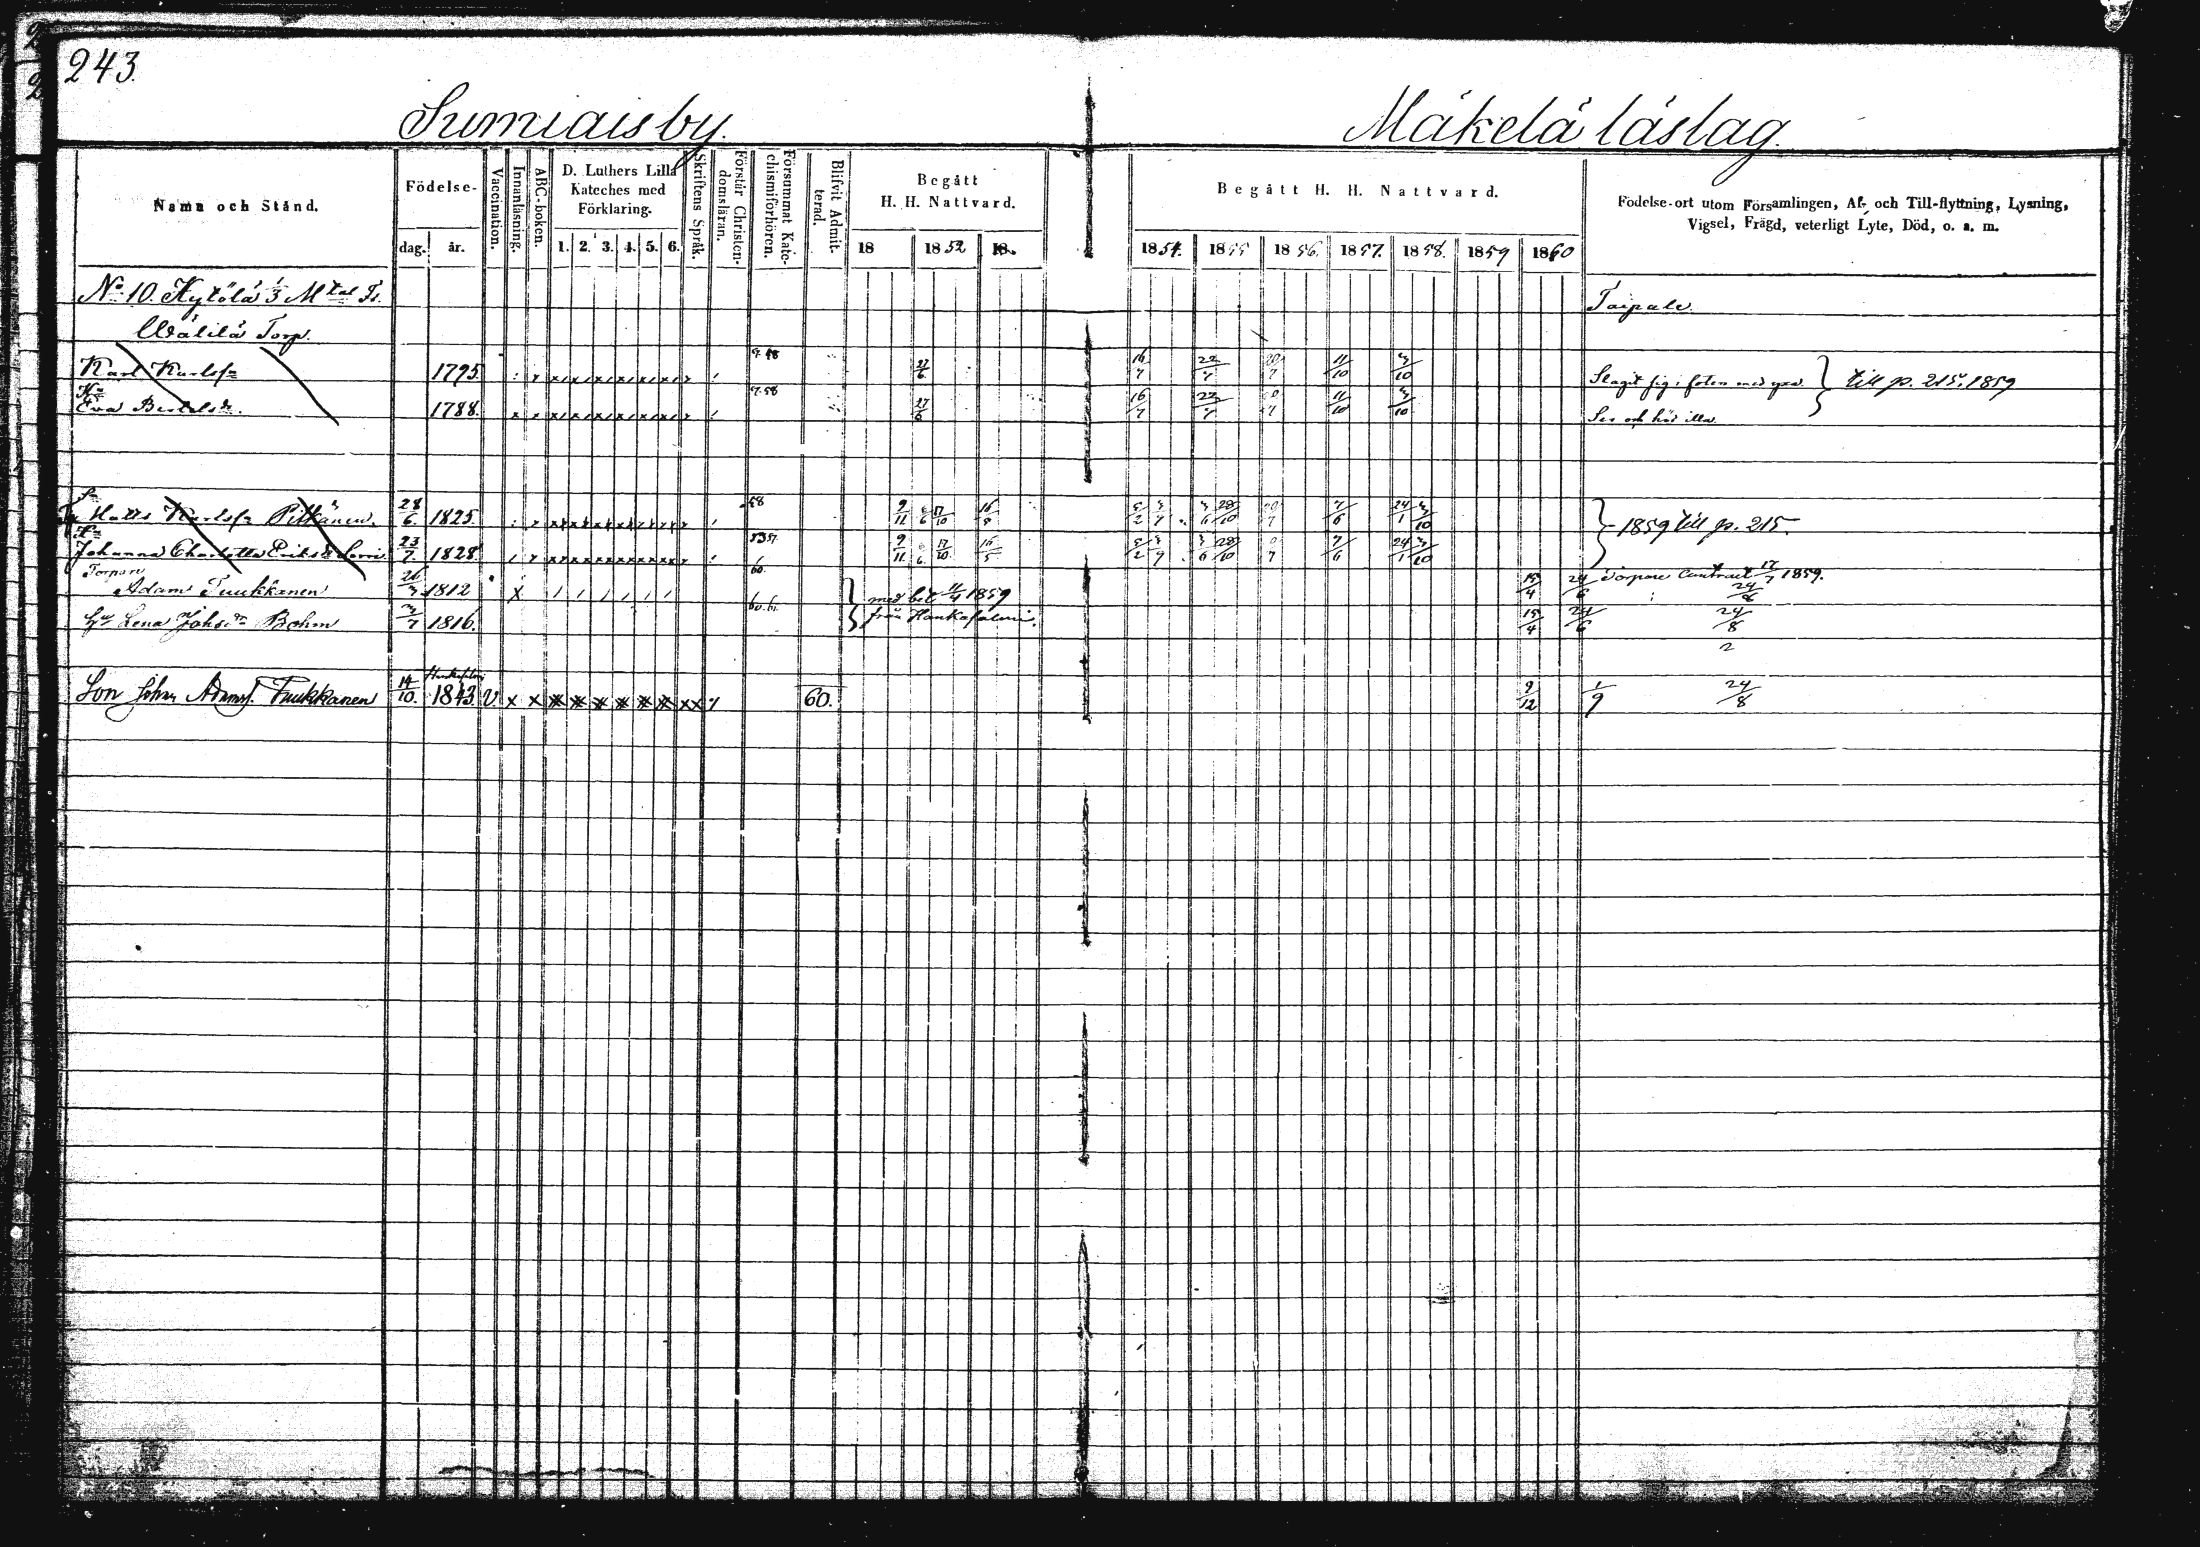 243.
Sumiais by. Mäkelä läslag.
Namn och Stånd. Födelse- dag. år. Vaccination. Innanläsning. ABC-boken. D. Luthers Lilla Kateches med Förklaring. 1. 2. 3. 4. 5. 6. Skriftens Språk. Förstår Christendomsläran. Försummat Katechismiförhören. Blifvit Admitterad. Begått H. H. Nattvard. 18 1852 18 Begått H. H. Nattvard. 1854. 1855 1856. 1857. 1858. 1859 1860 Födelse-ort utom Församlingen, Af- och Till-flyttning, Lysning, Vigsel, Frägd, veterligt Lyte, Död, o. s. m.
No 10. Kytölä 1/3 Mtal Taipale.
Wälilä Torp.
Karl Karlss 1795. 27/6 16/7 22/7 11/10 3/10 Slagit sig i foten med yxa. } till p. 215. 1859
Hu Eva Bertelsdr. 1788. 27/6 16/7 22/7 11/10 3/10 Ser och hör illa.
Sn Matts Karlss Pitkänen. 28/6. 1825. 58 9/11 17/10 7/6 24/1 3/10 } 1859 till p. 215.
Hu Johanna Charlotta Eriksd 23/7. 1828. 9/11 17/10 7/6 24/1 3/10
Torpare Adam Tuukkanen 1812 60. } med bet 1859 15/4 24/6 Torpare Contract 17/7 1859. 24/8
Hu Lena Johsdr Bohm 3/7 1816. 60. 61. från Hankasalmi. 15/4 24/6 24/8
2
Son Johan Adamss. Tuukkanen 14/10. Hankasalmi 1843. V. 60. 9/12 1/9 24/8